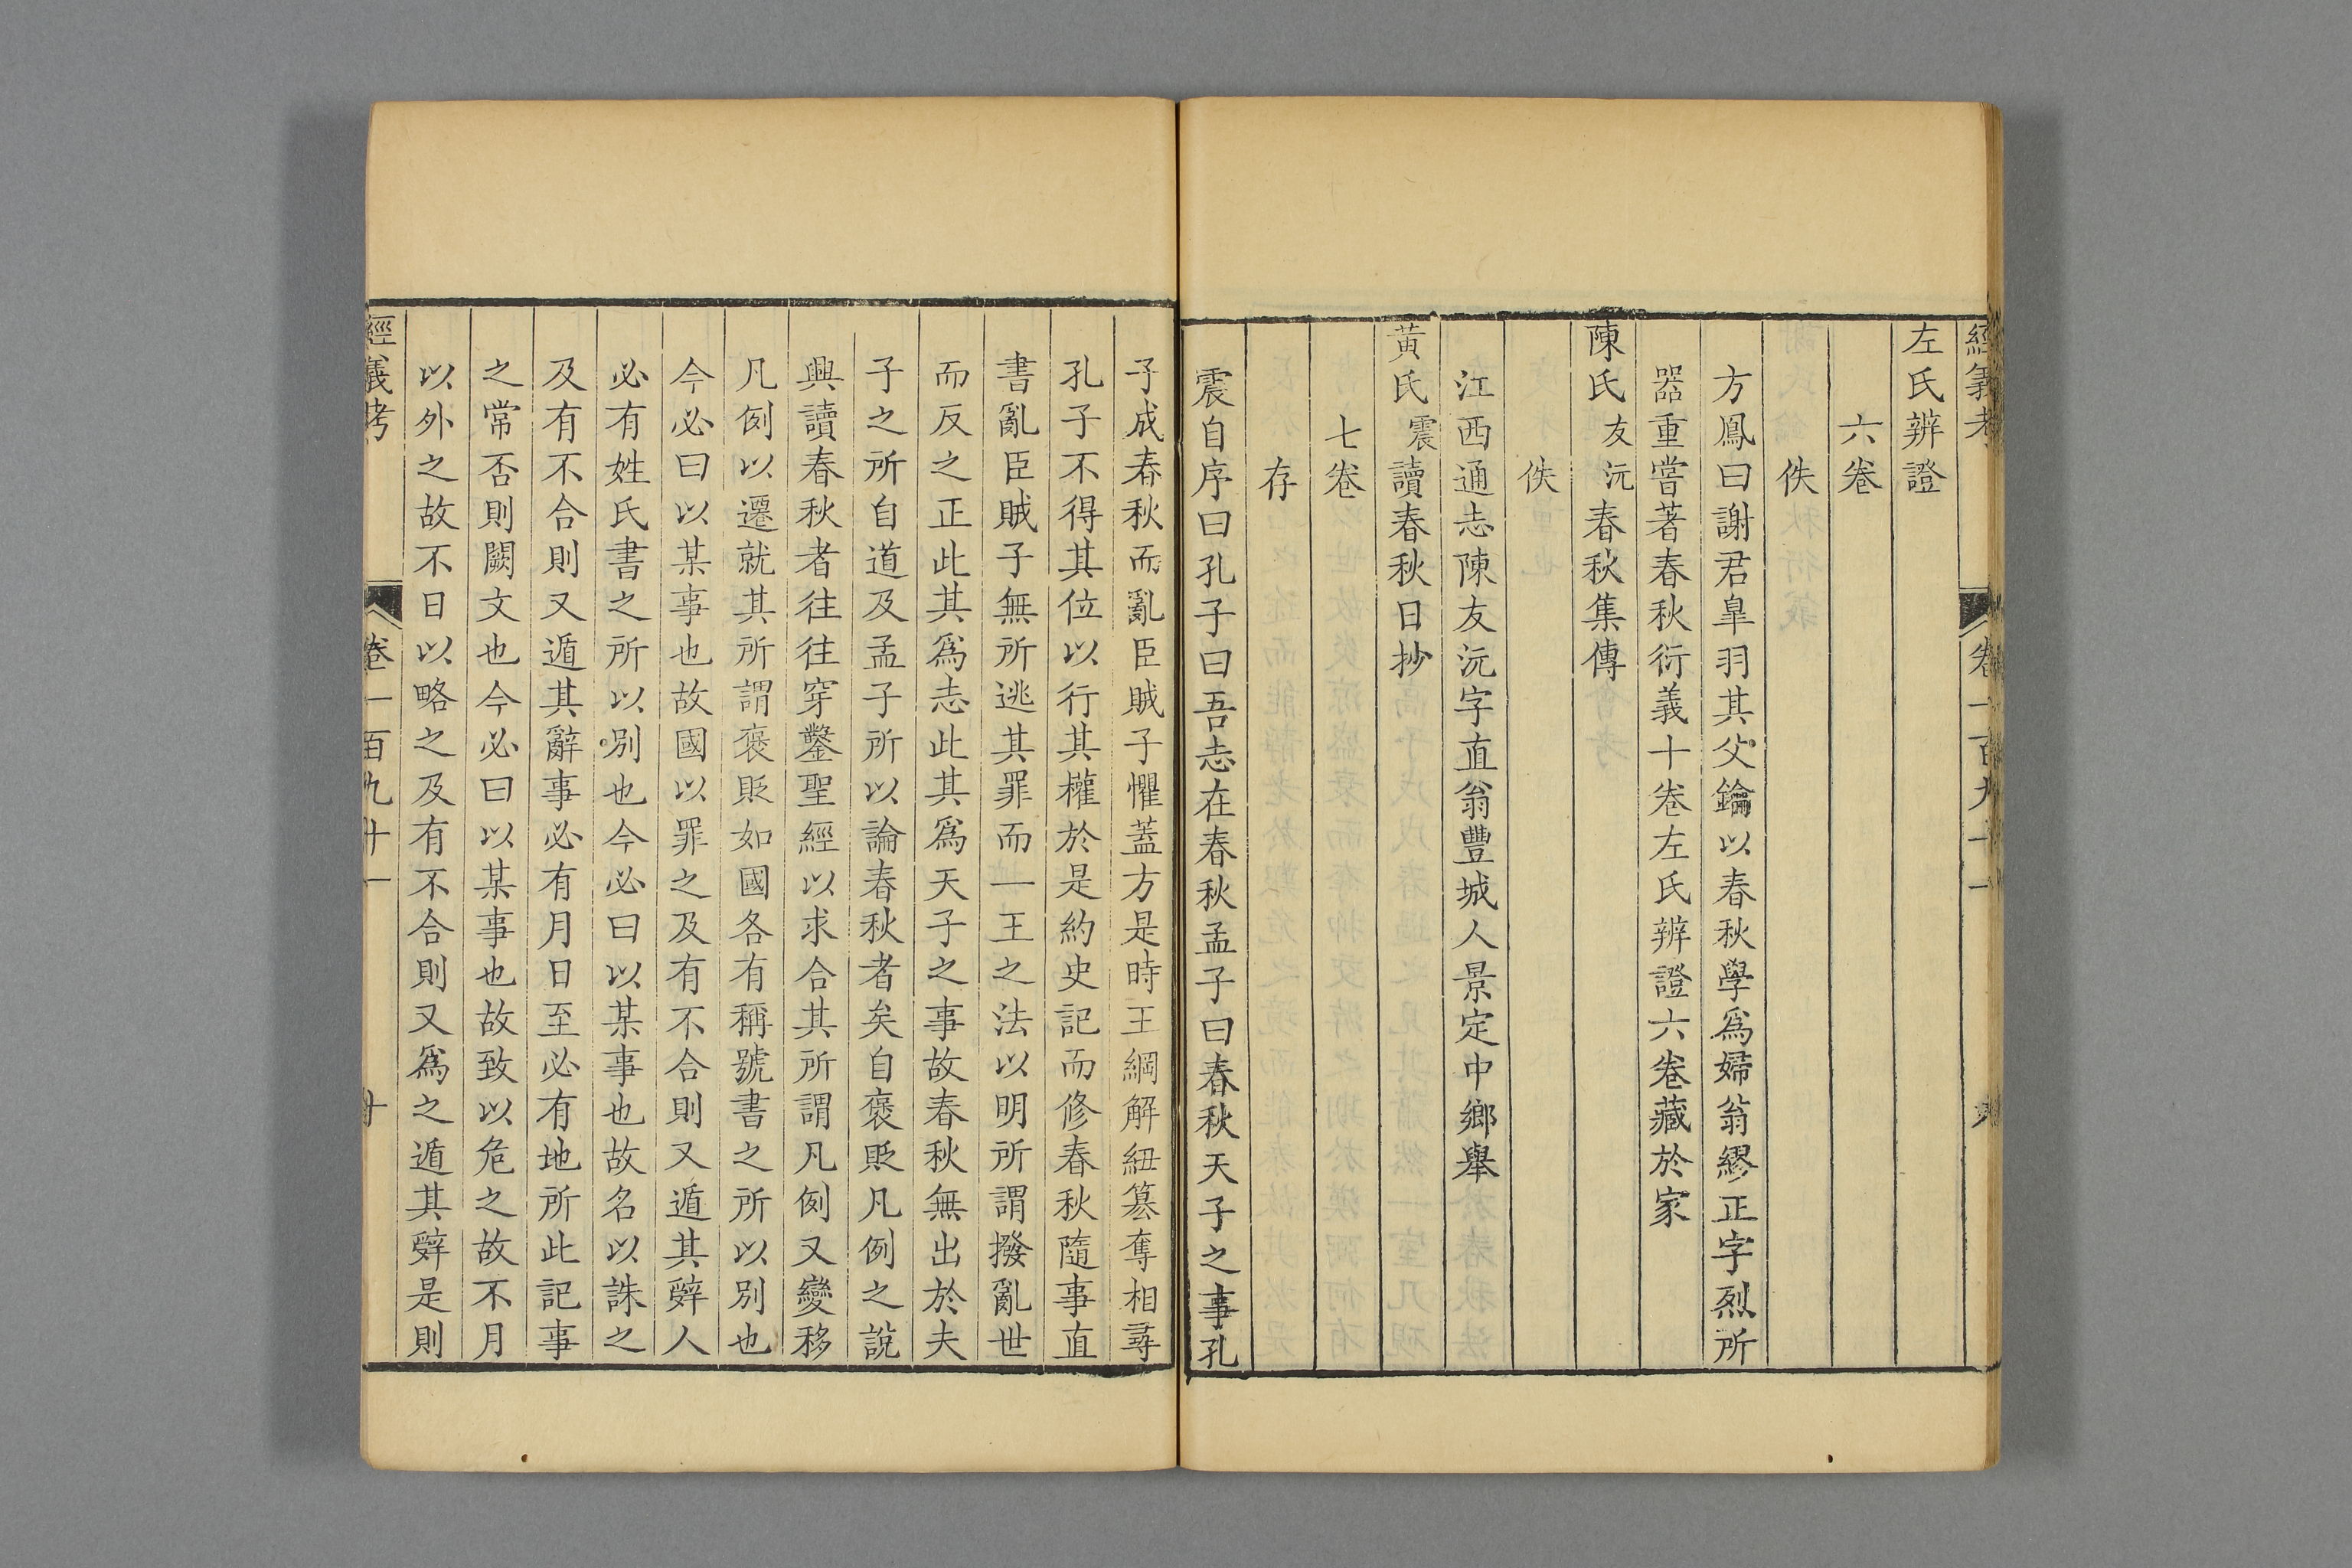 經義考　卷一百九十一　九
左氏辨證
六卷
佚
方鳳曰謝君皐羽其父鑰以春秋學爲婦翁繆正字烈所
器重嘗著春秋衍義十卷左氏辨證六卷藏於家
陳氏友沅春秋集傳
佚
江西通志陳友沅字直翁豐城人景定中鄉舉
黃氏震讀春秋日抄
七卷
存
震自序曰孔子曰吾志在春秋孟子曰春秋天子之事孔
子成春秋而亂臣賊子懼蓋方是時王綱解紐簒奪相尋
孔子不得其位以行其權於是約史記而修春秋隨事直
書亂臣賊子無所逃其罪而一王之法以明所謂撥亂世
而反之正此其爲志此其爲天子之事故春秋無出於夫
子之所自道及孟子所以論春秋者矣自褒貶凡例之說
興讀春秋者往往穿鑿聖經以求合其所謂凡例又變移
凡例以遷就其所謂褒貶如國各有稱號書之所以別也
今必曰以某事也故國以罪之及有不合則又遁其辭人
必有姓氏書之所以別也今必曰以某事也故名以誅之
及有不合則又遁其辭事必有月日至必有地所此記事
之常否則闕文也今必曰以某事也故致以危之故不月
以外之故不日以略之及有不合則又爲之遁其辭是則
經義考　卷一百九十一　十